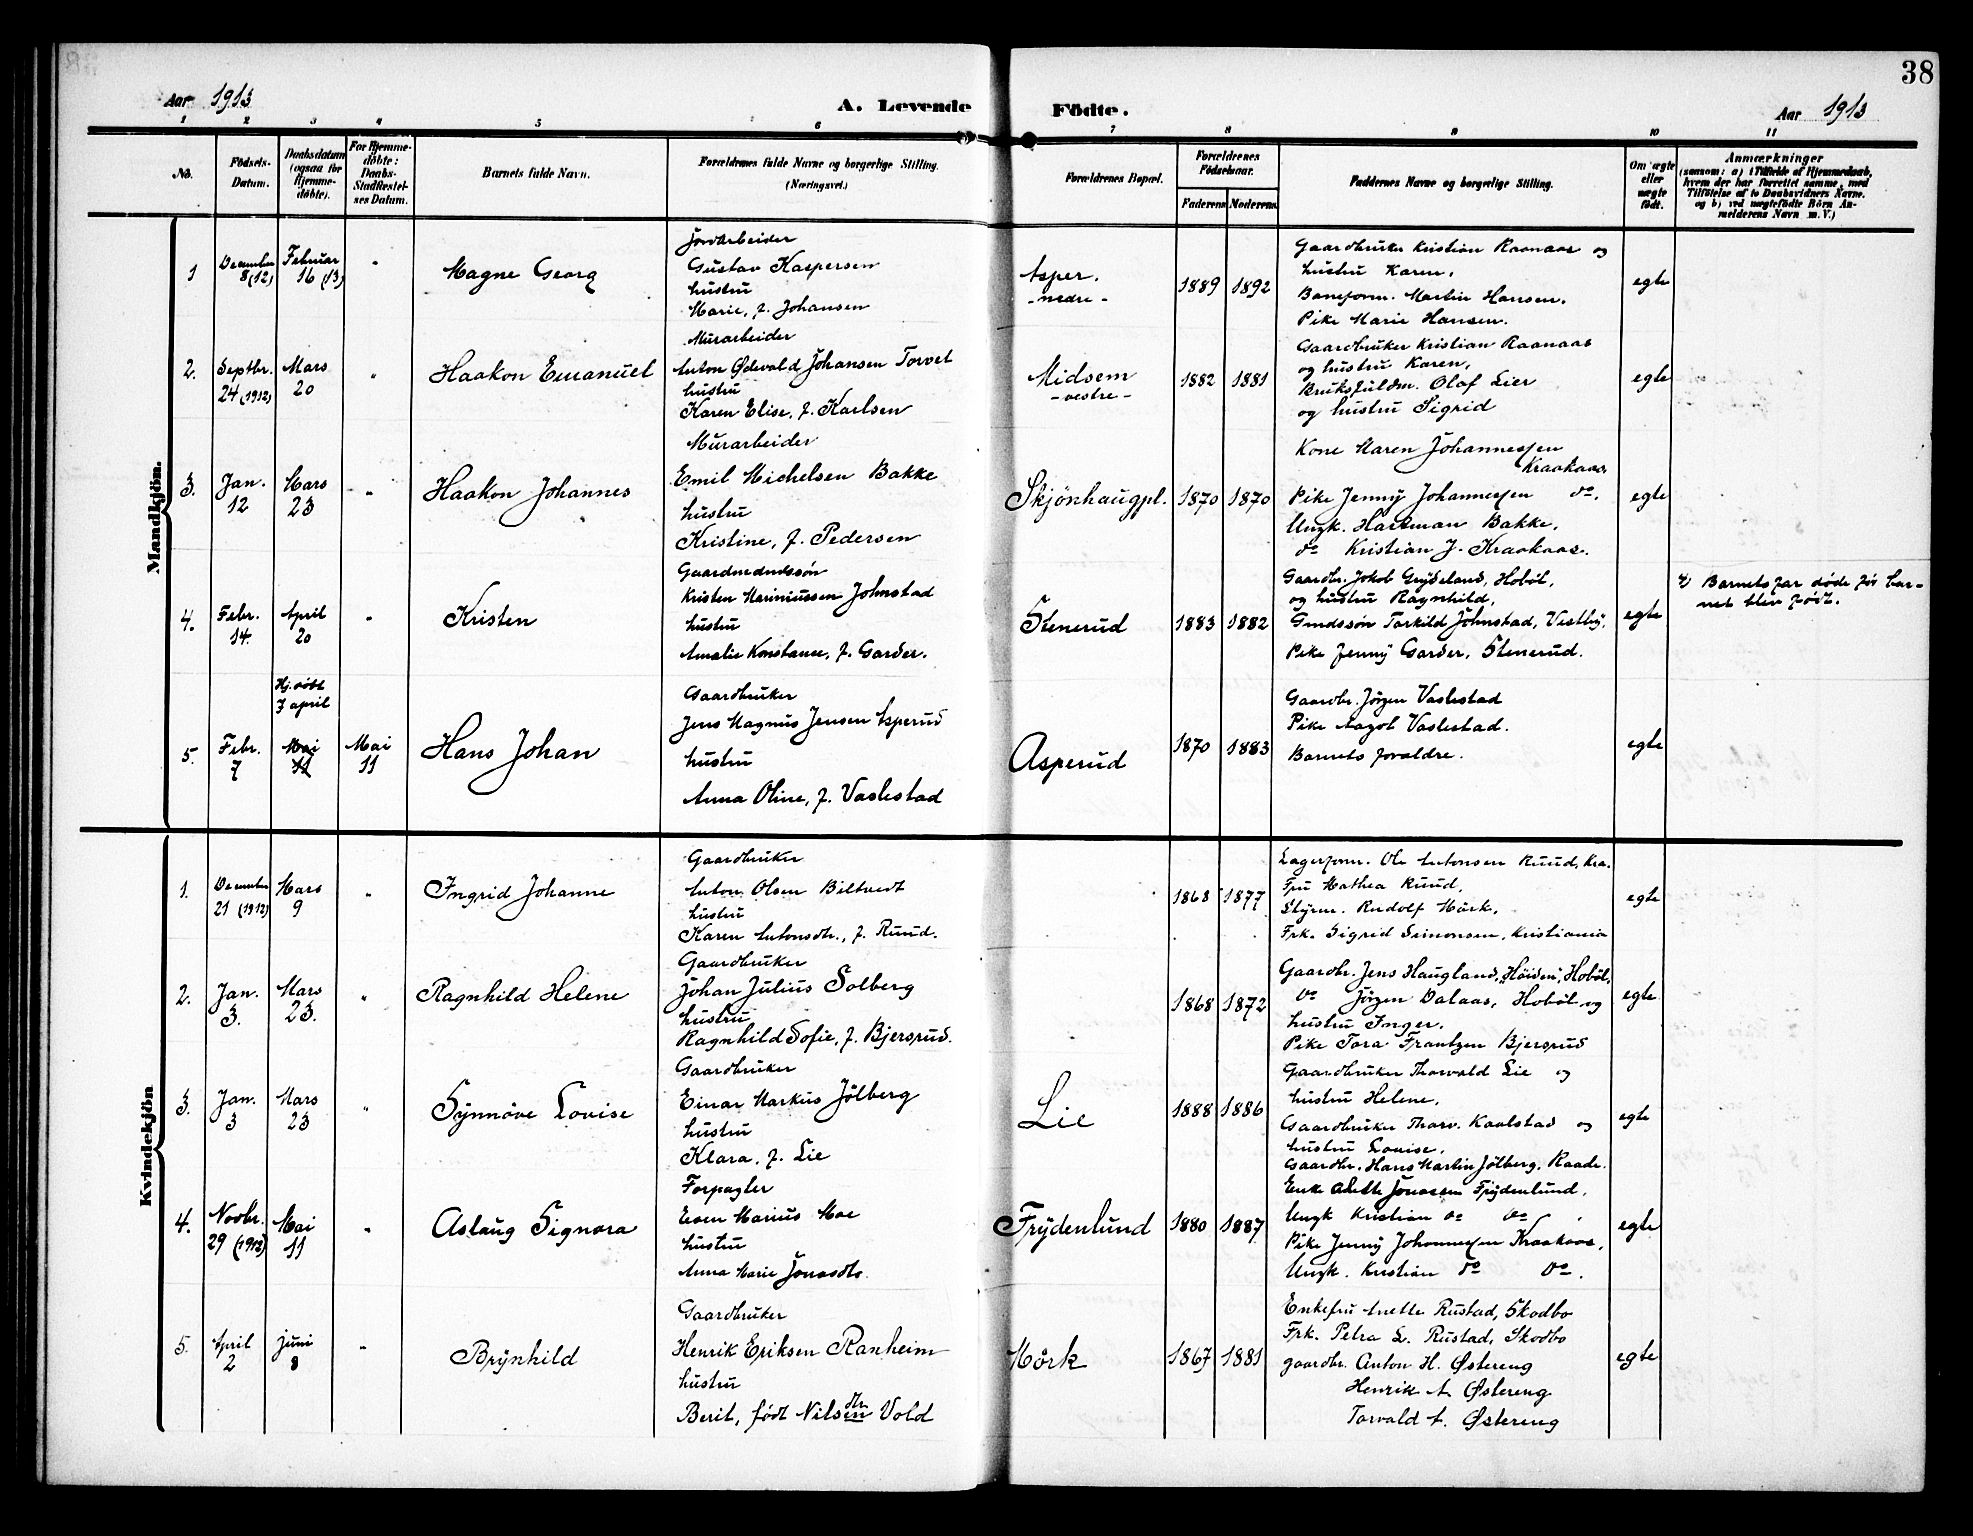 38
Aar 1913
A. Levende Födte.
Aar 1913
1 2 3 4 5 6 7 8 9 10 11
No.
Födsels-
Datum.
Daabsdatum
(ogsaa for
Hjemme-
döbte).
For Hjemme-
döbte:
Daabs-
Stadfæstel-
ses Datum.
Barnets fulde Navn.
Forældrenes fulde Navne og borgerlige Stilling.
(Næringsvei.)
Forældrenes Bopæl.
Forældrenes
Födselsaar.
Faderens Moderens
Faddernes Navne og borgerlige Stilling.
Om ægte
eller
uægte
födt.
Anmærkninger
(saasom: a) i Tilfælde af Hjemmedaab,
hvem der har forrettet samme, med
Tilföielse af to Daabsvidners Navne.
og b) ved uægtefödte Börn An-
melderens Navn m. V.)
Mandkjön.
1
December
8 (12)
Februar
16 (13)
"
Magne Georg
Jordarbeider
Gustav Kaspersen
hustru
Marie, f. Johansen
Asper.
- nedre -
1889 1892
Gaardbruker Kristian Raanaas og
hustru Karen.
Baneform. Martin Hansen.
Pike Marie Hansen.
egte
2.
Septbr.
24 (1912)
Mars
20
"
Haakon Emanuel
Murarbeider
Anton Edevald Johansen Torvet
hustru
Karen Elise, f. Karlsen
Midsem
- vestre -
1882 1881
Gaardbruker Kristian Raanaas
og hustru Karen,
Bruksfuldm. Olaf Lier
og hustru Sigrid
egte
3.
Jan.
12
Mars
23
"
Haakon Johannes
Murarbeider
Emil Michelsen Bakke
hustru
Kristine, f. Pedersen
Skjönhaugpl.
1870 1870
Kone Maren Johannessen
Kraakaas
Pike Jenny Johannessen do.
Ungk. Hartman Bakke.
do Kristian J. Kraakaas.
egte
4.
Febr.
14.
April
20
"
Kristen
Gaardmandssön
Kristen Mariniussen Johnstad
hustru
Amalie Konstance, f. Garder.
Stenerud
1883 1882
Gaardbr. Jakob Grydeland, Hoböl,
og hustru Ragnhild,
Gmdssön Torkild Johnstad, Vestby.
Pike Jenny Garder, Stenerud.
egte
4) Barnets far döde för bar-
net blev født.
5.
Febr.
7
Hj. döbt
7 april
Mai
11
Mai
11
Hans Johan
Gaardbruker
Jens Magnus Jensen Asperud
hustru
Anna Oline, f. Vaslestad
Asperud
1870 1883
Gaardbr. Jörgen Vaslestad
Pike Aagot Vaslestad.
Barnets foraldre.
egte
Kvindekjön
1.
December
21 (1912)
Mars
9
"
Ingrid Johanne
Gaardbruker
Anton Olsen Biltvedt
hustru
Karen Antonsdtr., f. Ruud.
1868 1877
Lagerform. Ole Antonsen Ruud, Kra.
Fru Mathea Ruud,
Styrm. Rudolf Mörk,
Frk. Sigrid Simonsen, Kristiania
egte
2.
Jan.
3.
Mars
23.
"
Ragnhild Helene
Gaardbruker
Johan Julius Solberg
hustru
Ragnhild Sofie, f. Bjersrud.
1868 1872
Gaardbr. Jens Haugland, "Höiden", Hoböl,
do Jörgen Dalaas, Hoböl og
hustru Inger.
Pike Tora Frantzen Bjersrud
egte
3.
Jan.
3
Mars
23
"
Synnöve Louise
Gaardbruker
Einar Markus Jölberg
hustru
Klara, f. Lie
Lie
1888 1886
Gaardbruker Thorvald Lie og
hustru Helene,
Gaardbruker Thorv. Kaalstad og
hustru Louise.
Gaardbr. Hans Martin Jölberg, Raade.
egte
4.
Novbr.
29 (1912)
Mai
11
"
Aslaug Signora
Forpagter
Even Marius Moe
hustru
Anna Marie Jonasdtr.
Frydenlund
1880 1887
Enke Anette Jonassen Frydenlund,
Ungk Kristian do do.
Pike Jenny Johannessen Kraakaas,
Ungk. Kristian do do.
egte
5.
April
2
juni
8
"
Brynhild
Gaardbruker
Henrik Eriksen Ranheim
hustru
Berit, født Nilsen dtr. Vold
Mörk
1867 1881
Enkefru Anette Rustad, Skodbo
Frk. Petra L. Rustad, Skodbo
gaardbr. Anton H. Østereng
Henrik A. Østereng
Torvald A. Østereng
egte